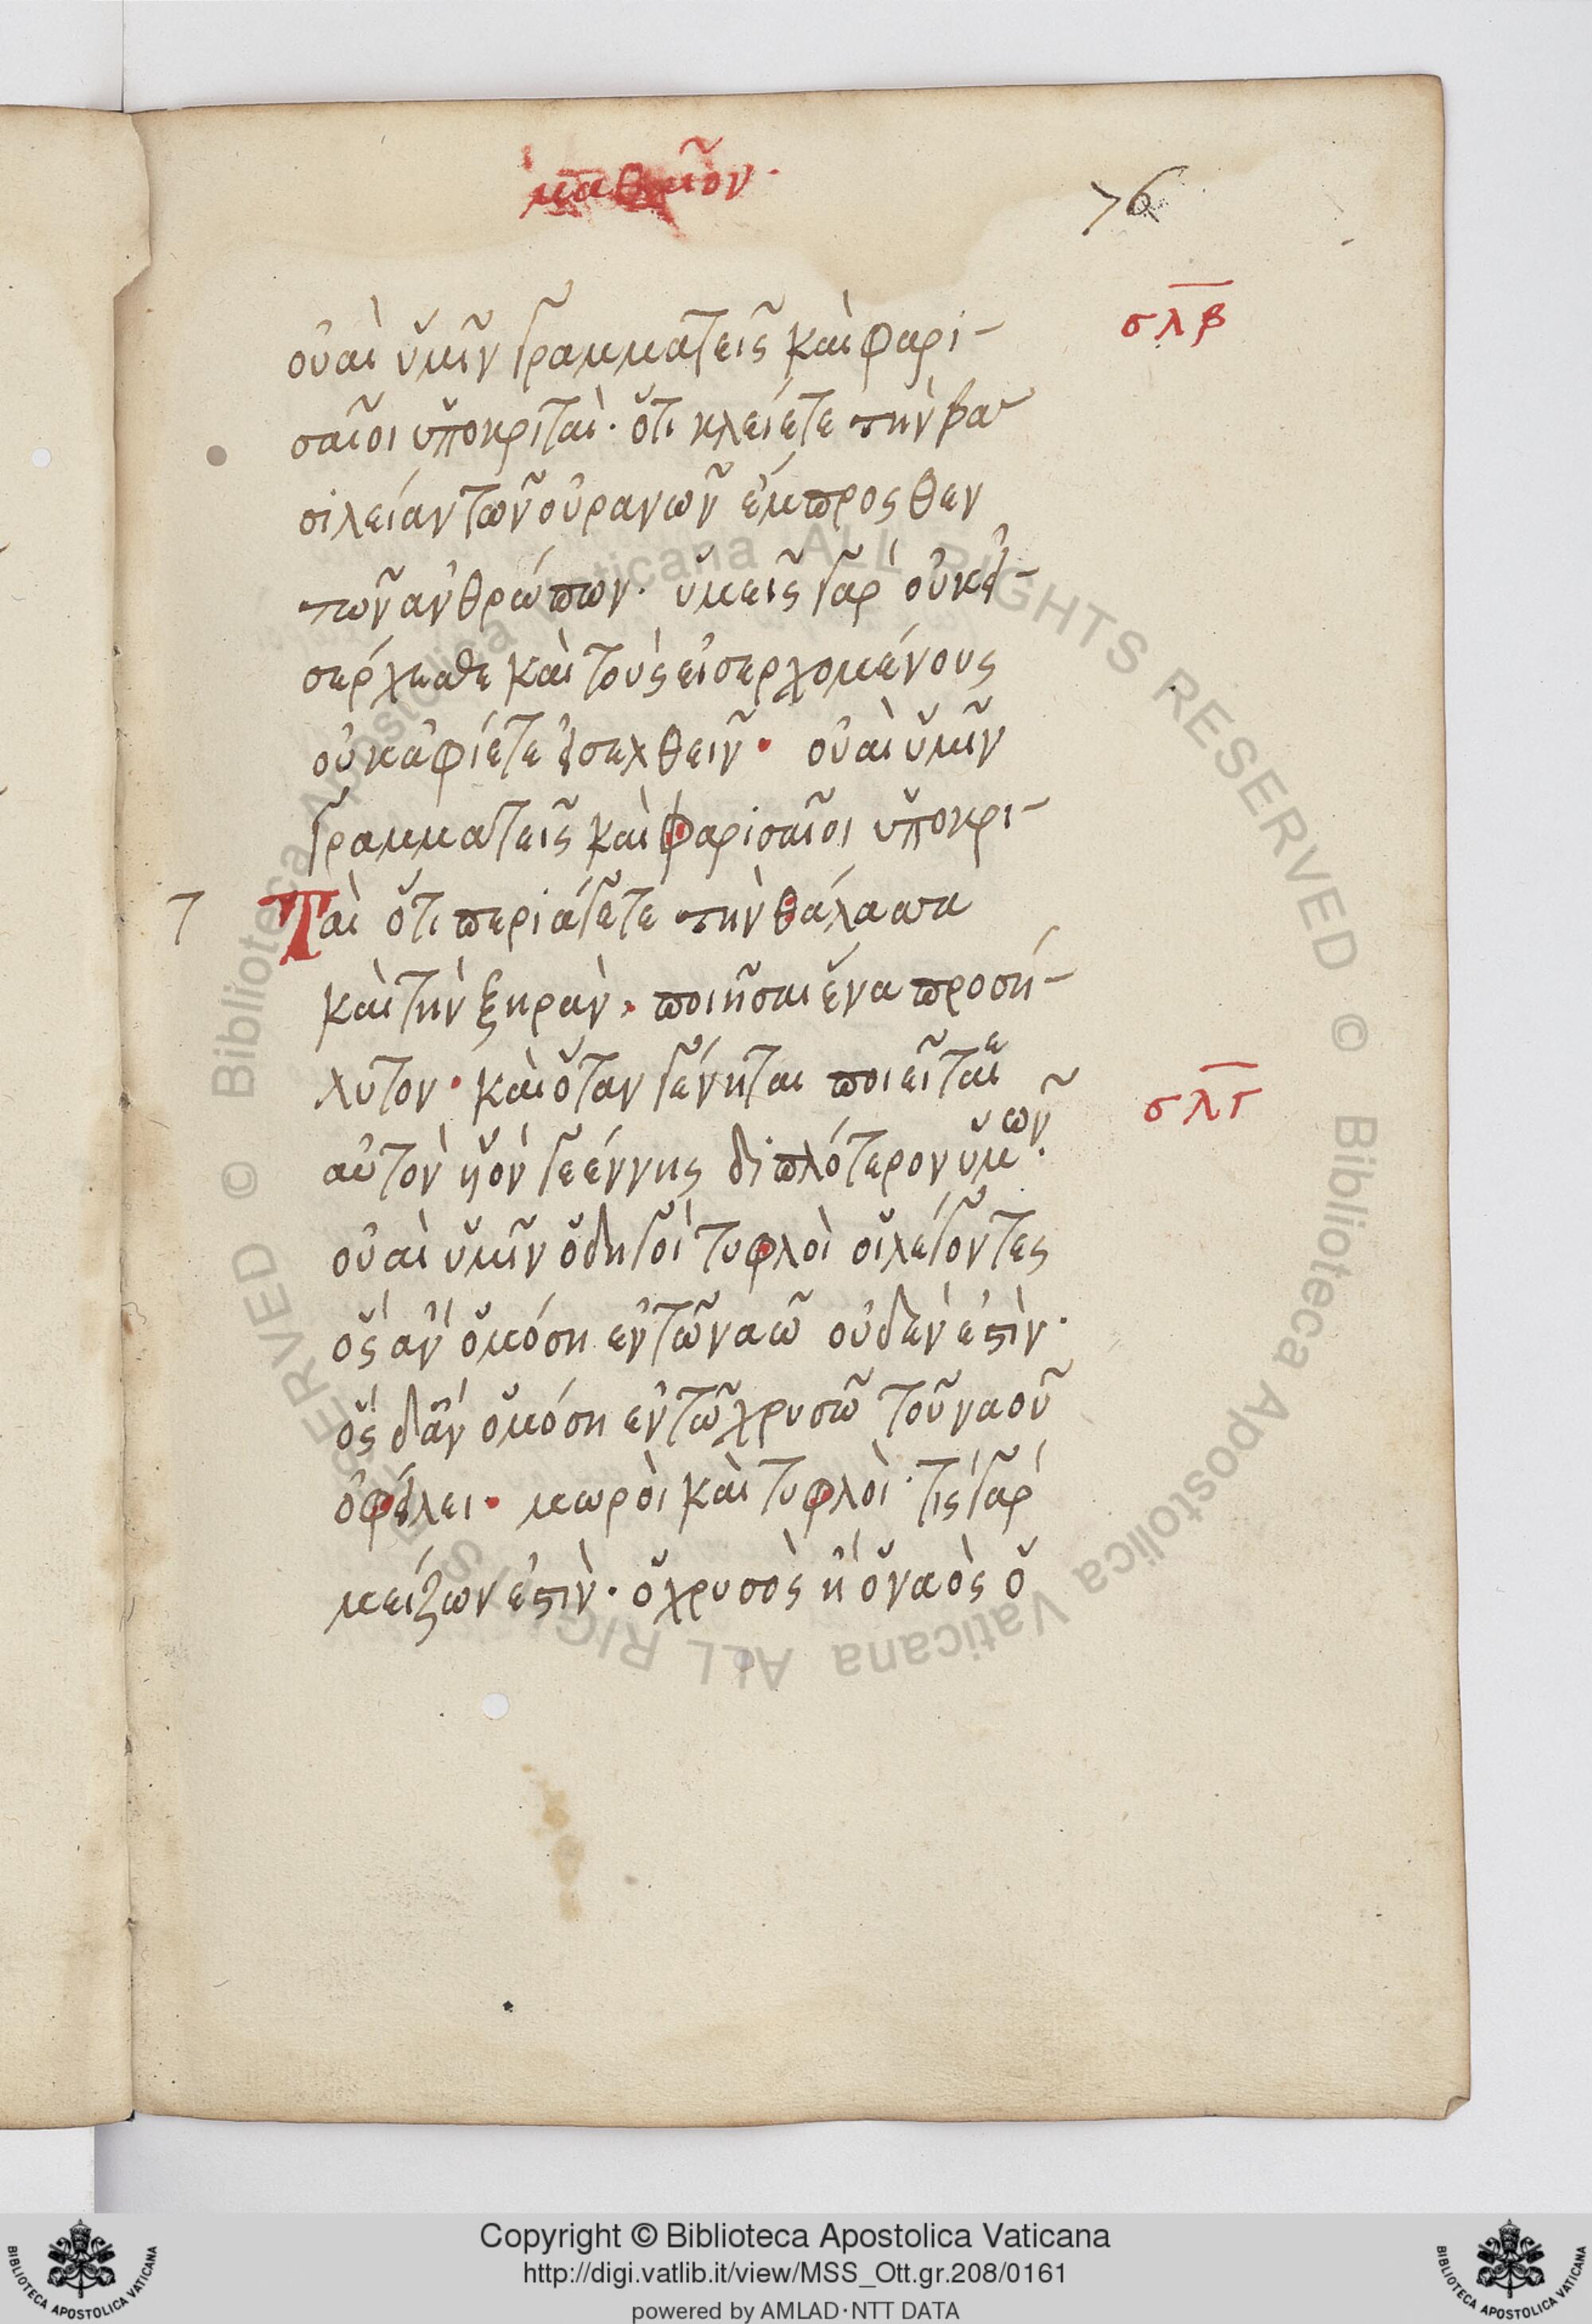 76
σλβ
οὐαὶ ὑμῖν γραμματεῖς καὶ φαρι-
σαῖοι ὑποκριταὶ· ὅτι κλείετε τὴν βα
σιλείαν τῶν οὐρανῶν ἔμπροσθεν
τῶν ἀνθρώπων· ὑμεῖς γὰρ οὐκ εἰ-
σέρχεσθε καὶ τοὺς εἰσερχομένους
οὐκ ἀφίετε εἰσελθεῖν· οὐαὶ ὑμῖν
γραμματεῖς καὶ φαρισαῖοι ὑποκρι-
τ Ταὶ ὅτι περιάγετε τὴν θάλασσα
καὶ τὴν ξηρὰν· ποιῆσαι ἕνα προσή-
λυτον· καὶ ὅταν γένηται ποιεῖται
ε
σλγ
αὐτὸν ἡὸν γεέννης διπλότερον ὑμῶν·
οὐαὶ ὑμῖν ὁδηγοὶ τυφλοὶ οἱ λέγοντες
ὃς ἂν ὀμόση ἐν τῶ ναῶ οὐδέν ἐστὶν·
ὃς δ' ἂν ὀμόση ἐν τῶ χρυσῶ τοῦ ναοῦ
ὀφείλει· μωροὶ καὶ τυφλοὶ· τίς γὰρ
μείζων ἐστὶν· ὁ χρυσὸς ἢ ὁ ναὸς ὁ
Copyright © Biblioteca Apostolica Vaticana
http://digi.vatlib.it/view/MSS_Ott.gr.208/0161
powered by AMLAD·NTT DATA
BIBLIOTECA APOSTOLICA VATICANA
BIBLIOTECA APOSTOLICA VATICANA
© Biblioteca Apostolica Vaticana ALL RIGHTS RESERVED © Biblioteca Apostolica Vaticana ALL RIGHTS RESERVED